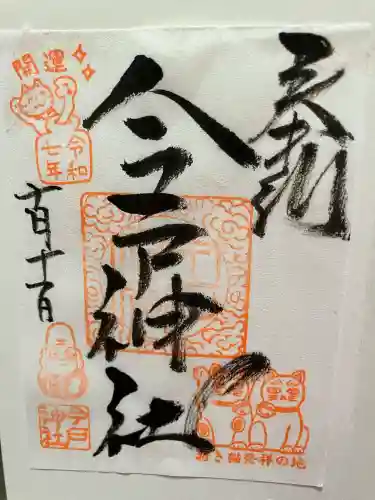 奉拝
今戸神社
開運
令和
七年
十一月十一日
今戸
神社
き猫発祥の地